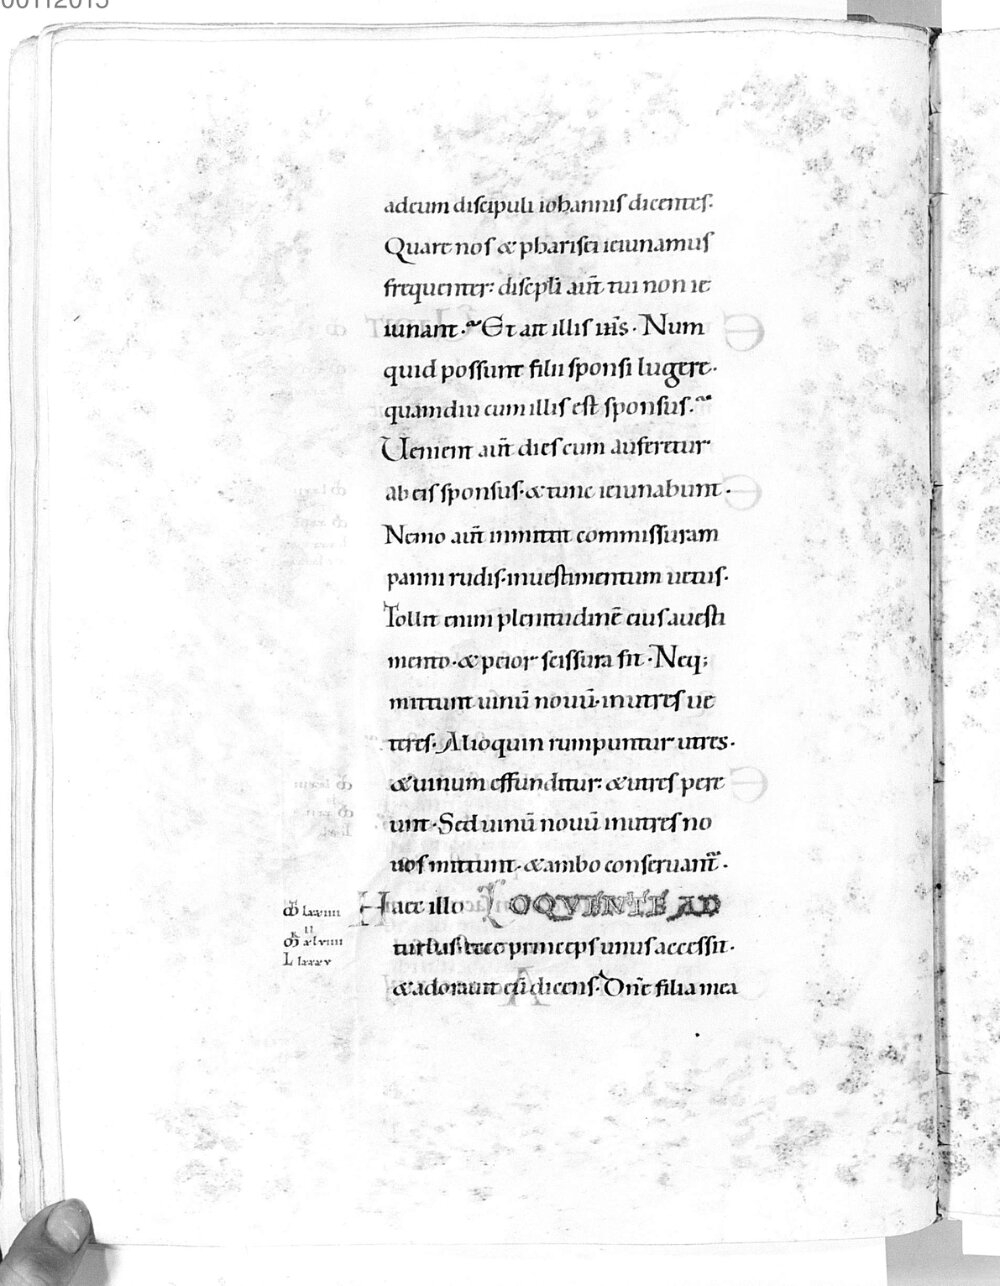 00112015
adeum discipuli iohannis dicentes.
Quare nos & pharisei ieiunamus
frequenter: discpli aut̄ tui non ie
iunant. Et ait illis ih̄s. Num
quid possunt filii sponsi lugere.
quamdiu cum illis est sponsus.
Uenient aut̄ dies cum auferetur
ab eis sponsus. & tunc ieiunabunt.
Nemo aut̄ inmittit commissuram
panni rudis. inuestimentum uetus.
Tollit enim plenitudinē eius auesti
mento. & peior scissura fit. Neq;
mittunt uinū nouū. inutres ue
teres. Alioquin rumpuntur utres.
& uinum effunditur: & utres pere
unt. Sed uinū nouū inutres no
uos mittunt. & ambo conseruant̄.
Haec illo LOQVENTE AD
turbas. ecce princeps unus accessit.
& adorauit eū dicens. Dn̄e filia mea
lxxiiii
II
xlviiii
L lxxxv